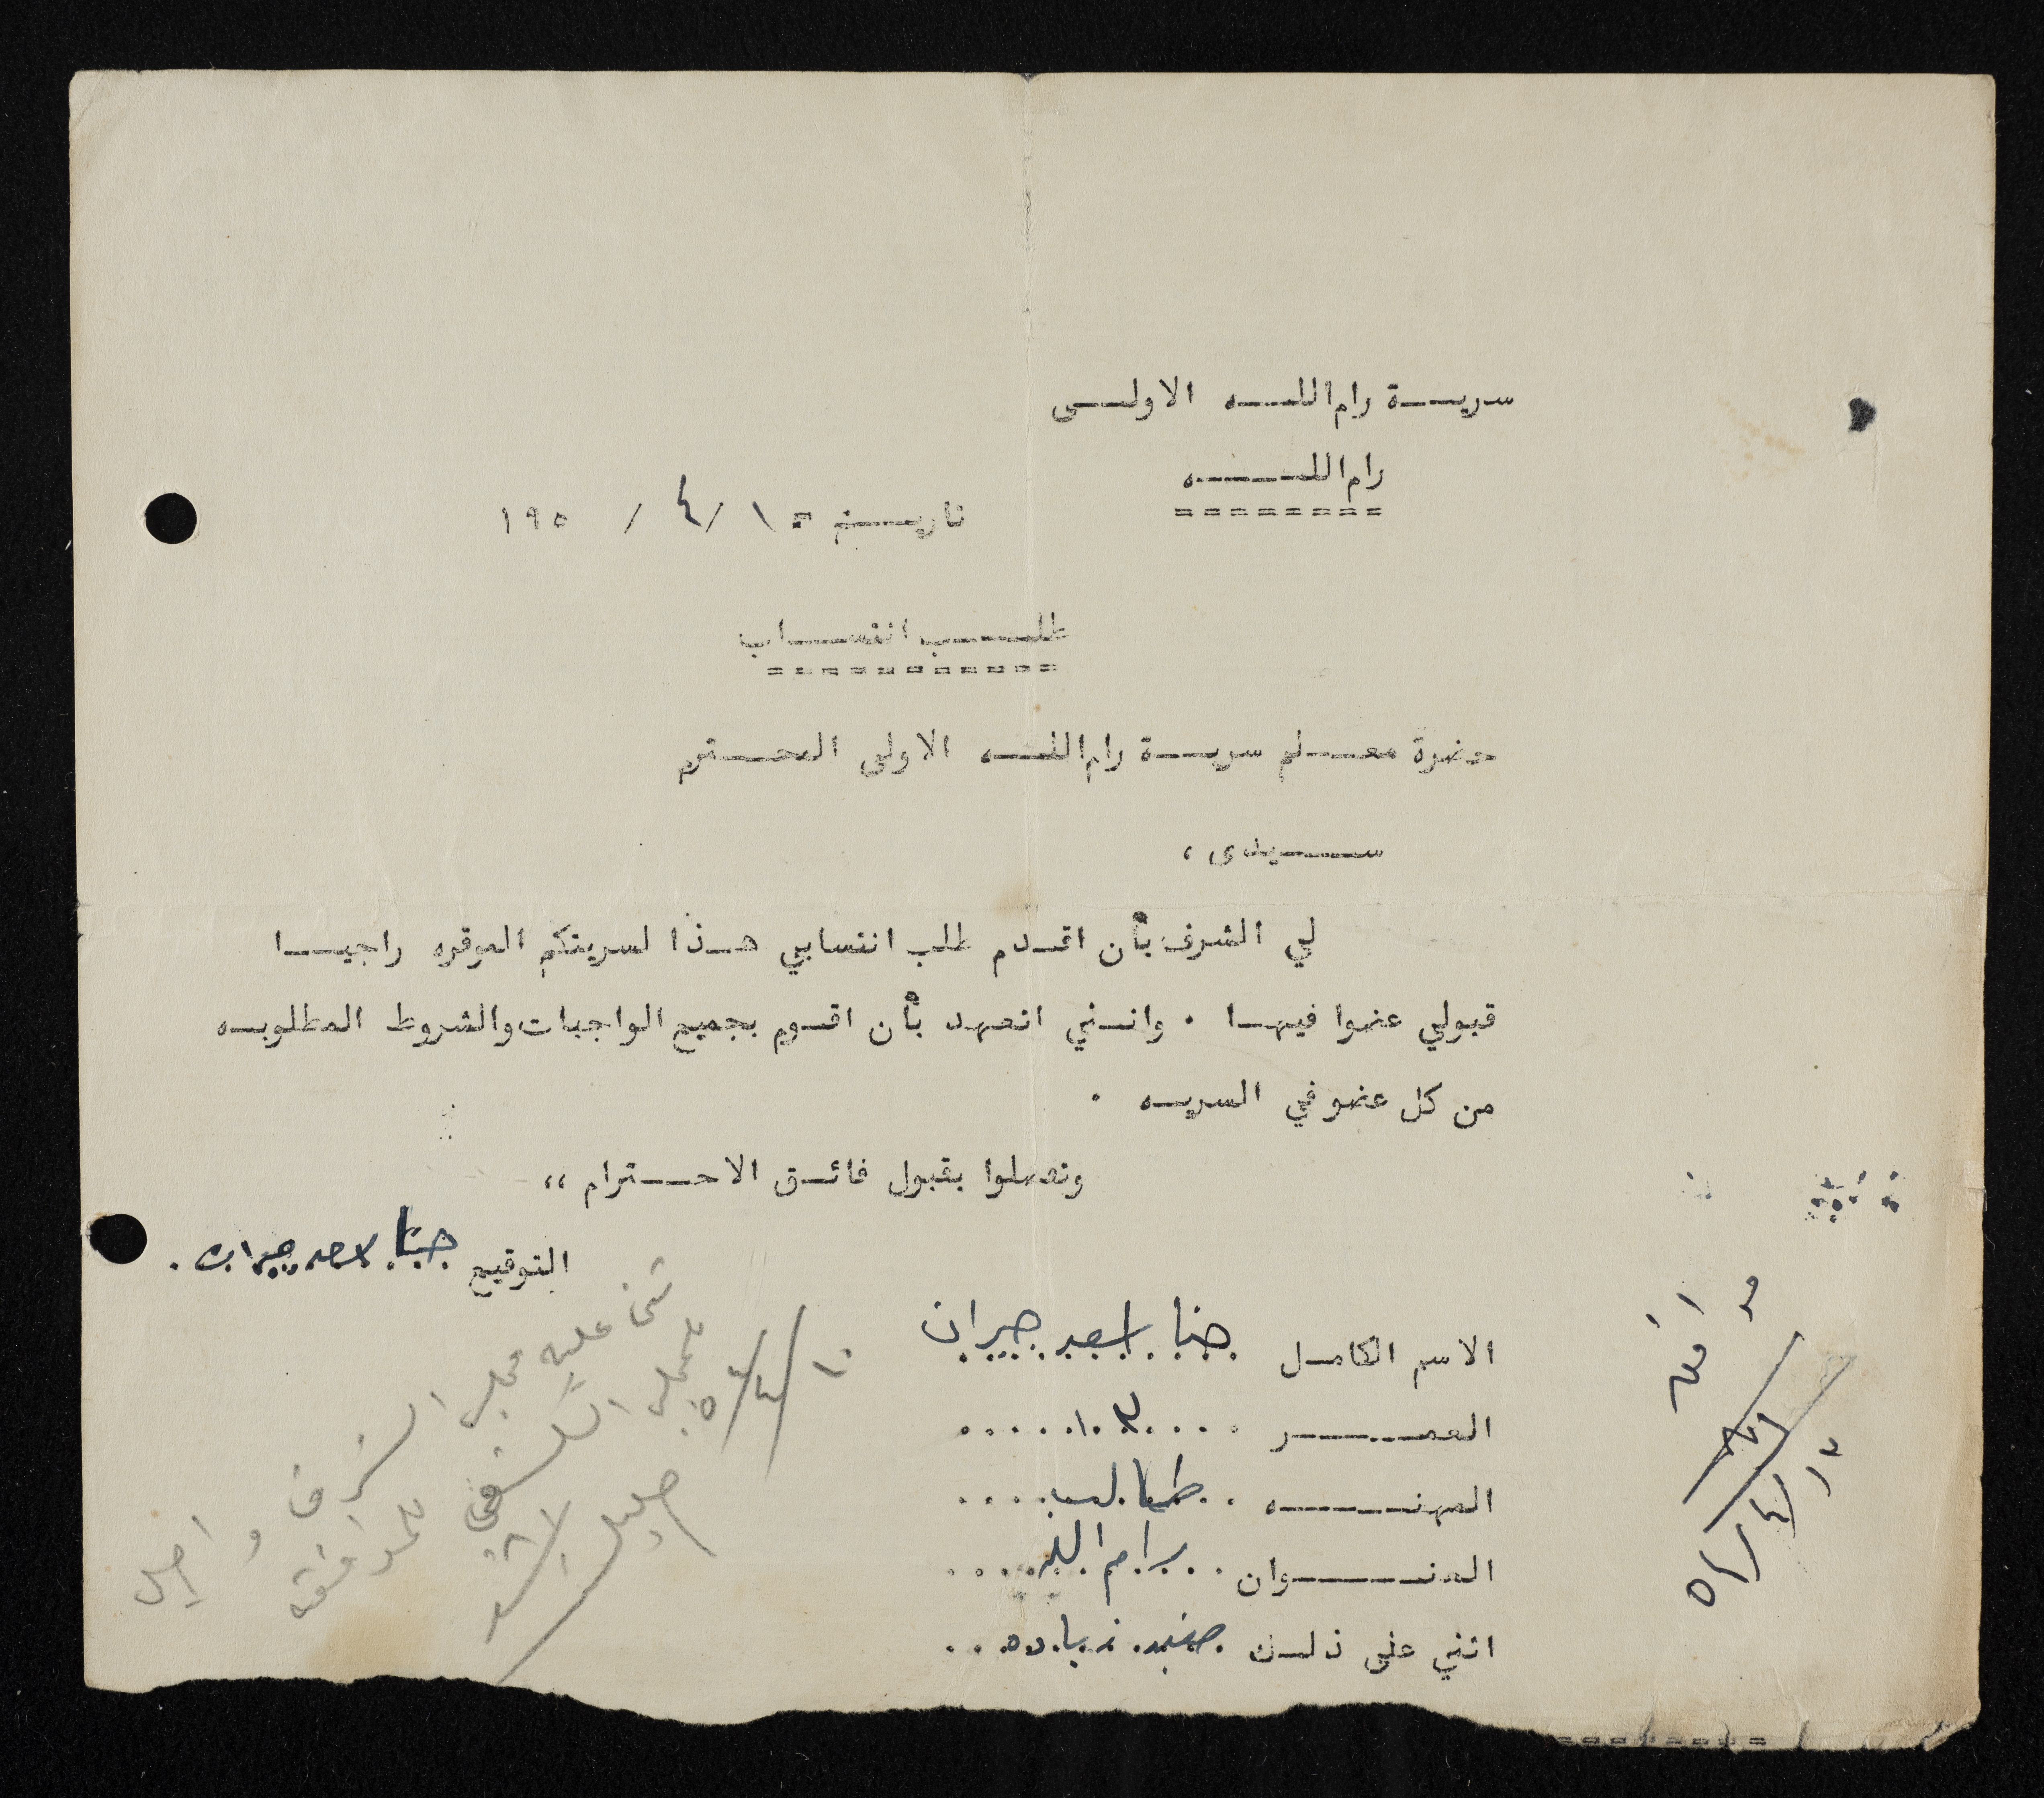 سرية رام الله الاولى
رام الله
========
تاريخ = ١ / ٤ / ١٩٥
طلب انتساب
===========
حضرة معلم سرية رام الله الاولى المحترم
سيدى ،
لي الشرف بأن اقدم طلب انتسابي هذا لسريتكم الموقره راجيا
قبولي عضوا فيها . وانني اتعهد بأن اقوم بجميع الواجبات والشروط المطلوبه
من كل عضو في السريه .
وتفضلوا بقبول فائق الاحترام ،،
التوقيع حنا اسعد جبران .
الاسم الكامل حنا اسعد جبران
العمر
المهنه . . طالب . . . .
العنوان . . رام الله . . . .
اثني على ذلك
موافق
١٣/٤/٥١
ثنى عليه مجلس الشرف و احيل
للمجلس الكشفي للموافقة
١٠/٤/٥١